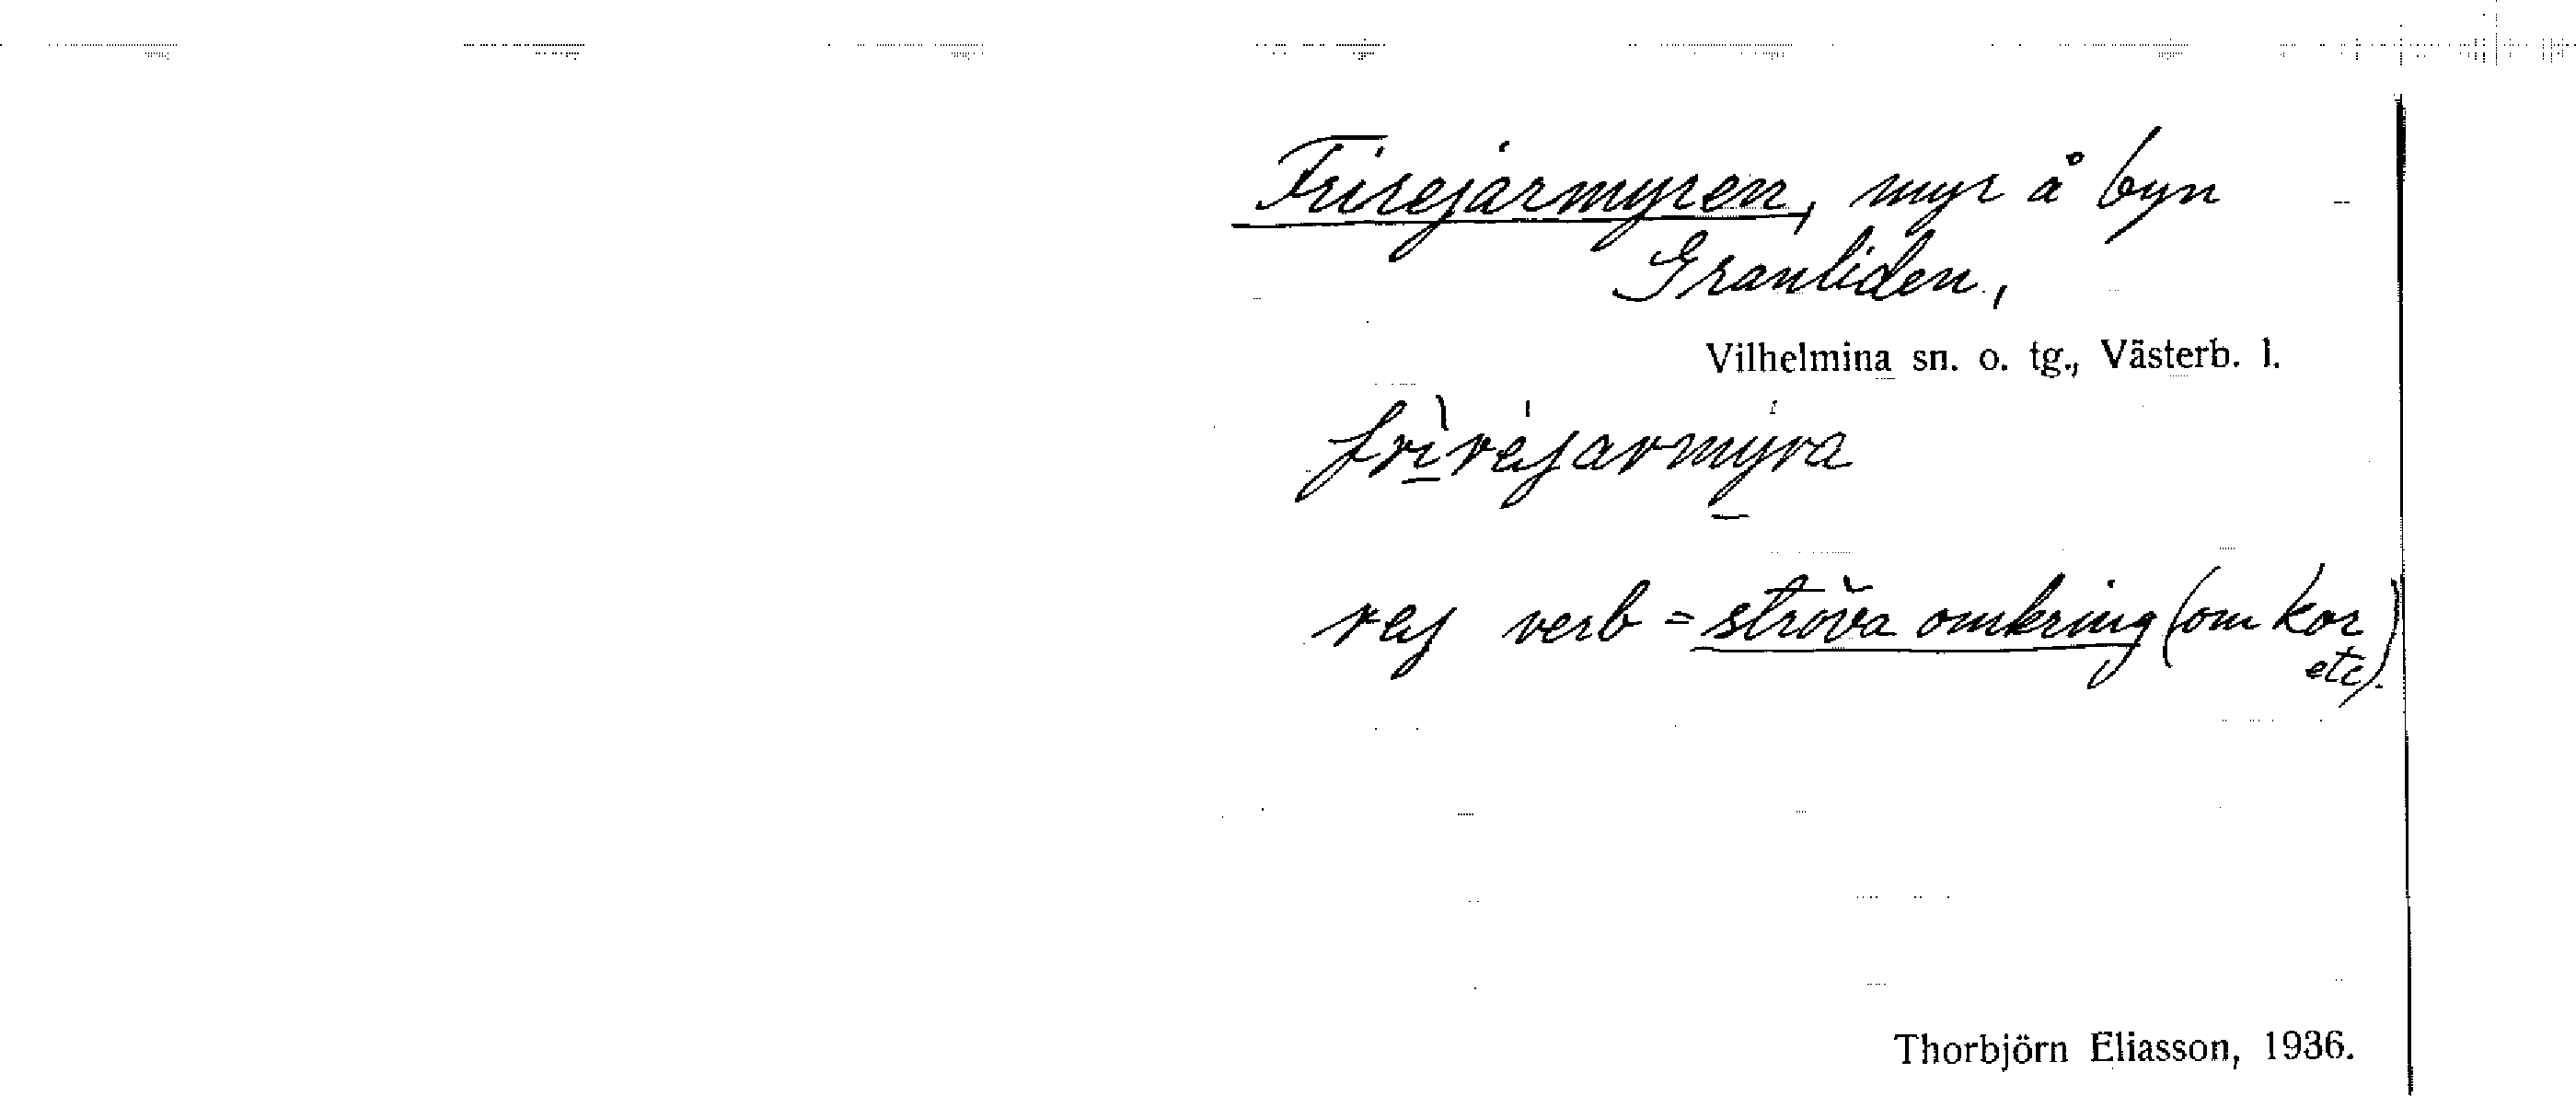 Frirejarmyren, myr å byn
Granliden,
Vilhelmina sn. o. tg., Västerb. l.
frìrejarmyra
rej verb = ströva omkring (om kor
etc).
Thorbjörn Eliasson, 1936.